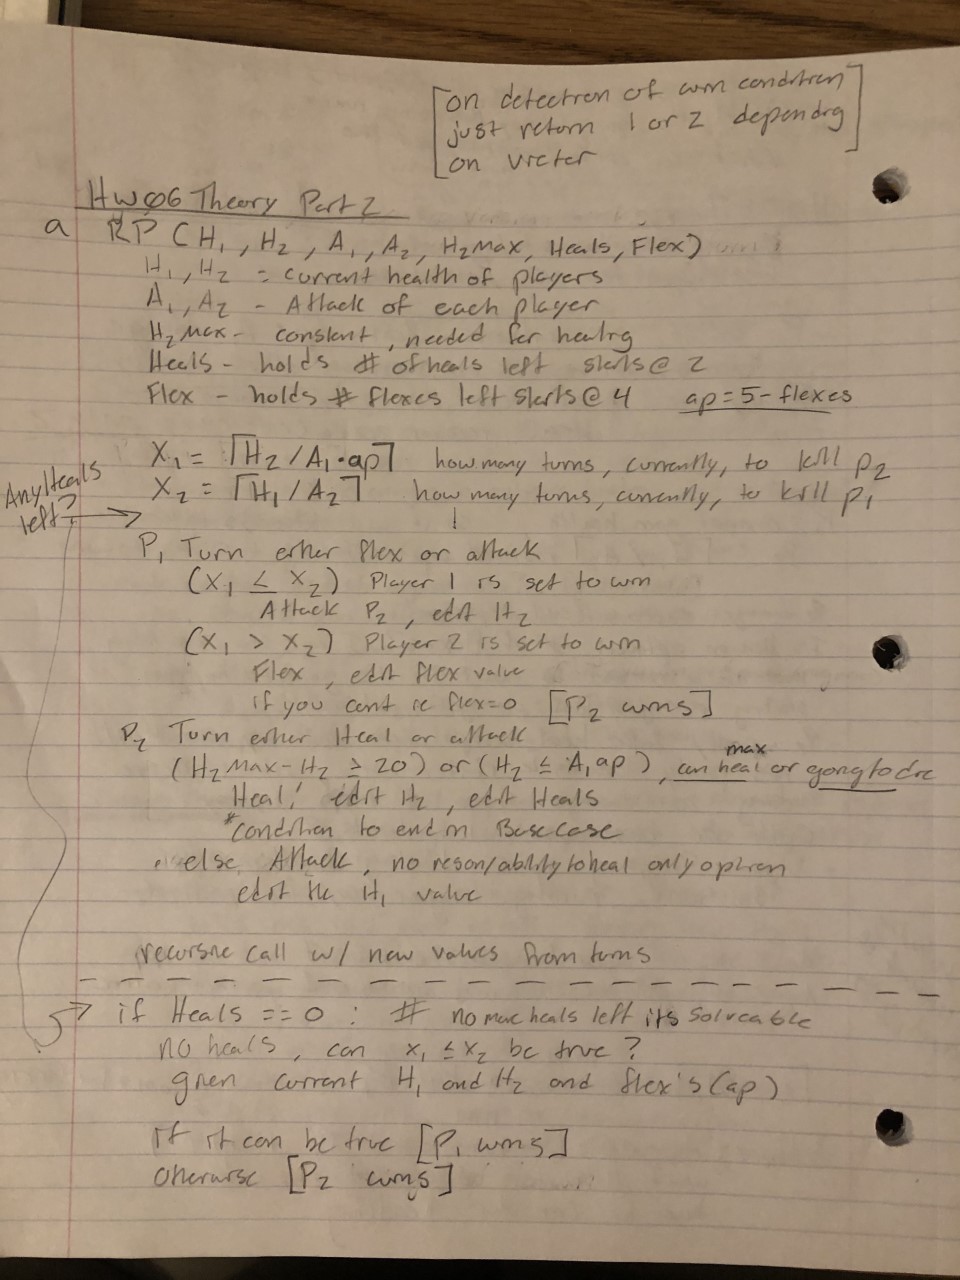 [on detection of win condition
just return 1 or 2 dependng
on victor]
HW06 Theory Part 2
a RP (H₁, H₂, A₁, A₂, H₂Max, Heals, Flex)
H₁, H₂ = current health of players
A₁, A₂ - Attack of each player
H₂Max - constant, needed for healing
Heals - holds # of heals left starts @ 2
Flex - holds # flexes left starts @ 4 ap = 5 - flexes
X₁ = ⌈H₂ / A₁·ap⌉ how many turns, currently, to kill P₂
Any Heals left?
X₂ = ⌈H₁ / A₂⌉ how many turns, currently, to kill P₁
P₁ Turn either flex or attack
(X₁ ≤ X₂) Player 1 is set to win
Attack P₂, edit H₂
(X₁ > X₂) Player 2 is set to win
Flex, edit flex value
if you cant ie flex=0 [P₂ wins]
P₂ Turn either Heal or attack
(H₂Max - H₂ ≥ 20) or (H₂ ≤ A₁ap), can max heal or going to die
Heal, edit H₂, edit Heals
*condition to end in Basecase
else Attack, no reson/ability to heal only option
edit the H₁ value
recursive call w/ new values from turns
if Heals == 0 : # no more heals left its solveable
no heals, can x₁ ≤ x₂ be true?
given current H₁ and H₂ and flex's (ap)
if it can be true [P₁ wins]
otherwise [P₂ wins]